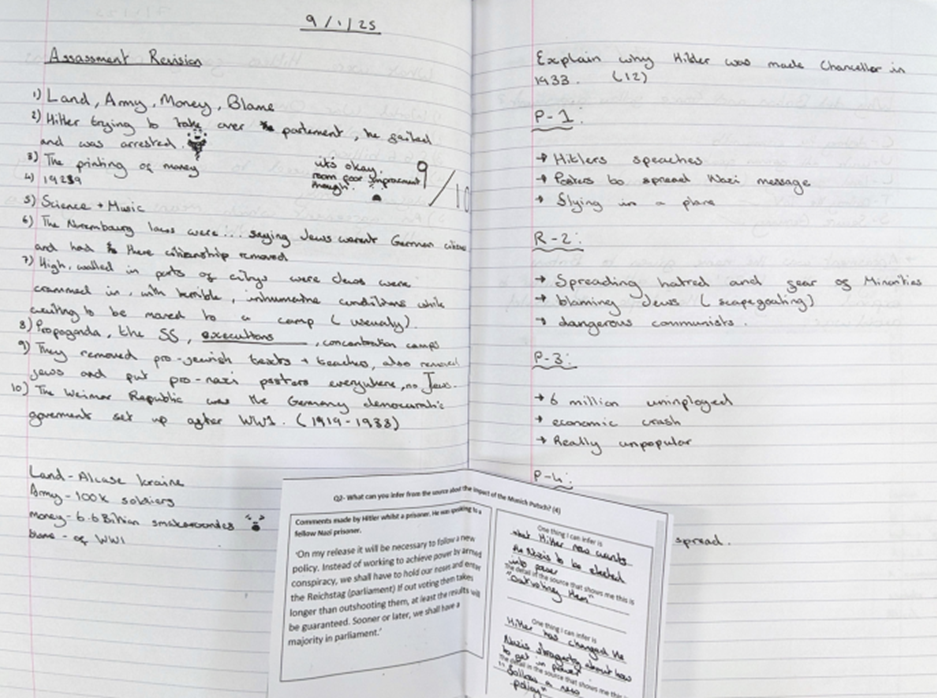 9/1/25
Assassment Revision
1) Land, Army, Money, Blame
2) Hitler trying to take over parlement, he gailed
and was arrested.
3) The printing of money
4) 1929
5) Science + Music
6) The Nuremburg laws were... saying Jews werent German
and had there citizenship removed
7) High, walled in parts of citys were Jews were
crammed in, with horrible, inhumaine conditions while
waiting to be moved to a camp (usually).
8) Propaganda, the SS, executions, concentration camps
9) They removed pro-jewish texts + teaches, also removed
jews and put pro-nazi posters everywhere, no Jews.
10) The Weimar Republic was the Germany democratic
goverment set up after WW1. (1919-1933)
it's okay.
room for improvement
though.
9/10
Land - Alcase loraine
Army - 100k soldiers
Money - 6.6 Billion
blame - of WW1
Explain why Hitler was made Chancellor in
1933. (12)
P-1:
→ Hitlers speaches
→ Posters to spread Nazi message
→ flying in a plane
R-2:
→ Spreading hatred and fear of Minorities
→ blaming Jews (scapegoating)
→ dangerous communists.
P-3:
→ 6 million uninployed
→ economic crash
→ Really unpopular
P-4:
spread.
Q2- What can you infer from the source about the impact of the Munich Putsch? (4)
Comments made by Hitler whilst a prisoner. He was speaking to a
fellow Nazi prisoner.
'On my release it will be necessary to follow a new
policy. Instead of working to achieve power by armed
conspiracy, we shall have to hold our noses and enter
the Reichstag (parliament) If out voting them takes
longer than outshooting them, at least the results will
be guaranteed. Sooner or later, we shall have a
majority in parliament.'
One thing I can infer is
that Hitler now wants
the Nazis to be elected
into power
The detail of the source that shows me this is
"outvoting them"
One thing I can infer is
Hitler has changed the
Nazis stragerty about how
to get in power.
The detail in the source that shows me this is
"follow a new
policy"